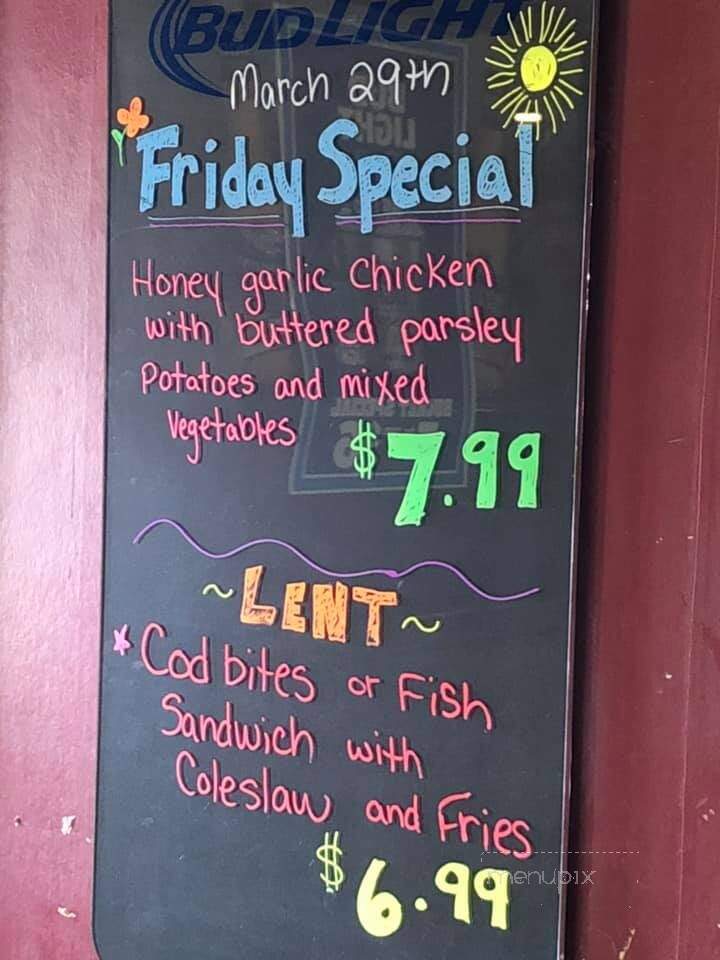 BUD LIGHT
March 29th
Friday Special
Honey garlic Chicken
with buttered parsley
Potatoes and mixed
Vegetables $7.99
~LENT~
Cod bites or Fish
Sandwich with
Coleslaw and Fries
$6.99
menupix